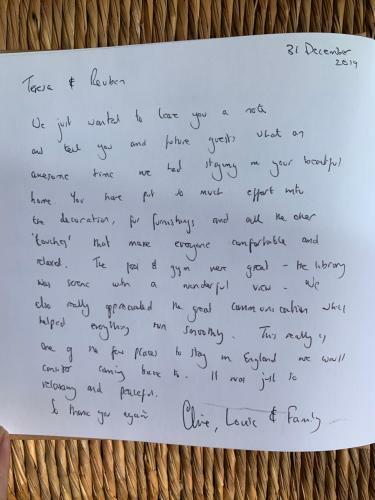 31 December
2019
Teresa & Reuben
We just wanted to leave you a note
and tell you and future guests what an
awesome time we had staying in your beautiful
home. You have put so much effort into
the decoration, fur furnishings and all the other
'touches' that make everyone comfortable and
relaxed. The pool & gym were great - the library
was serene with a wonderful view - We
also really appreciated the great communication which
helped everything run smoothly. This really is
one of the few places to stay in England we would
consider coming back to. It was just so
relaxing and peaceful.
So thank you again
Clive, Louise & Family